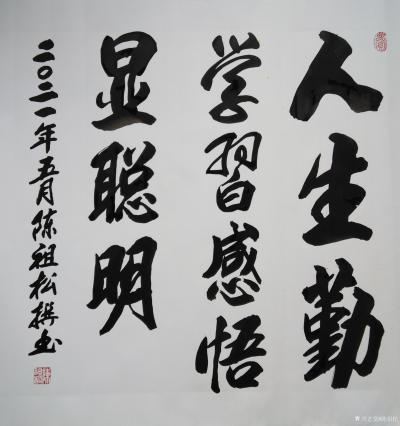 人生勤
学習感悟
显聪明
二〇二一年五月陈祖松撰书